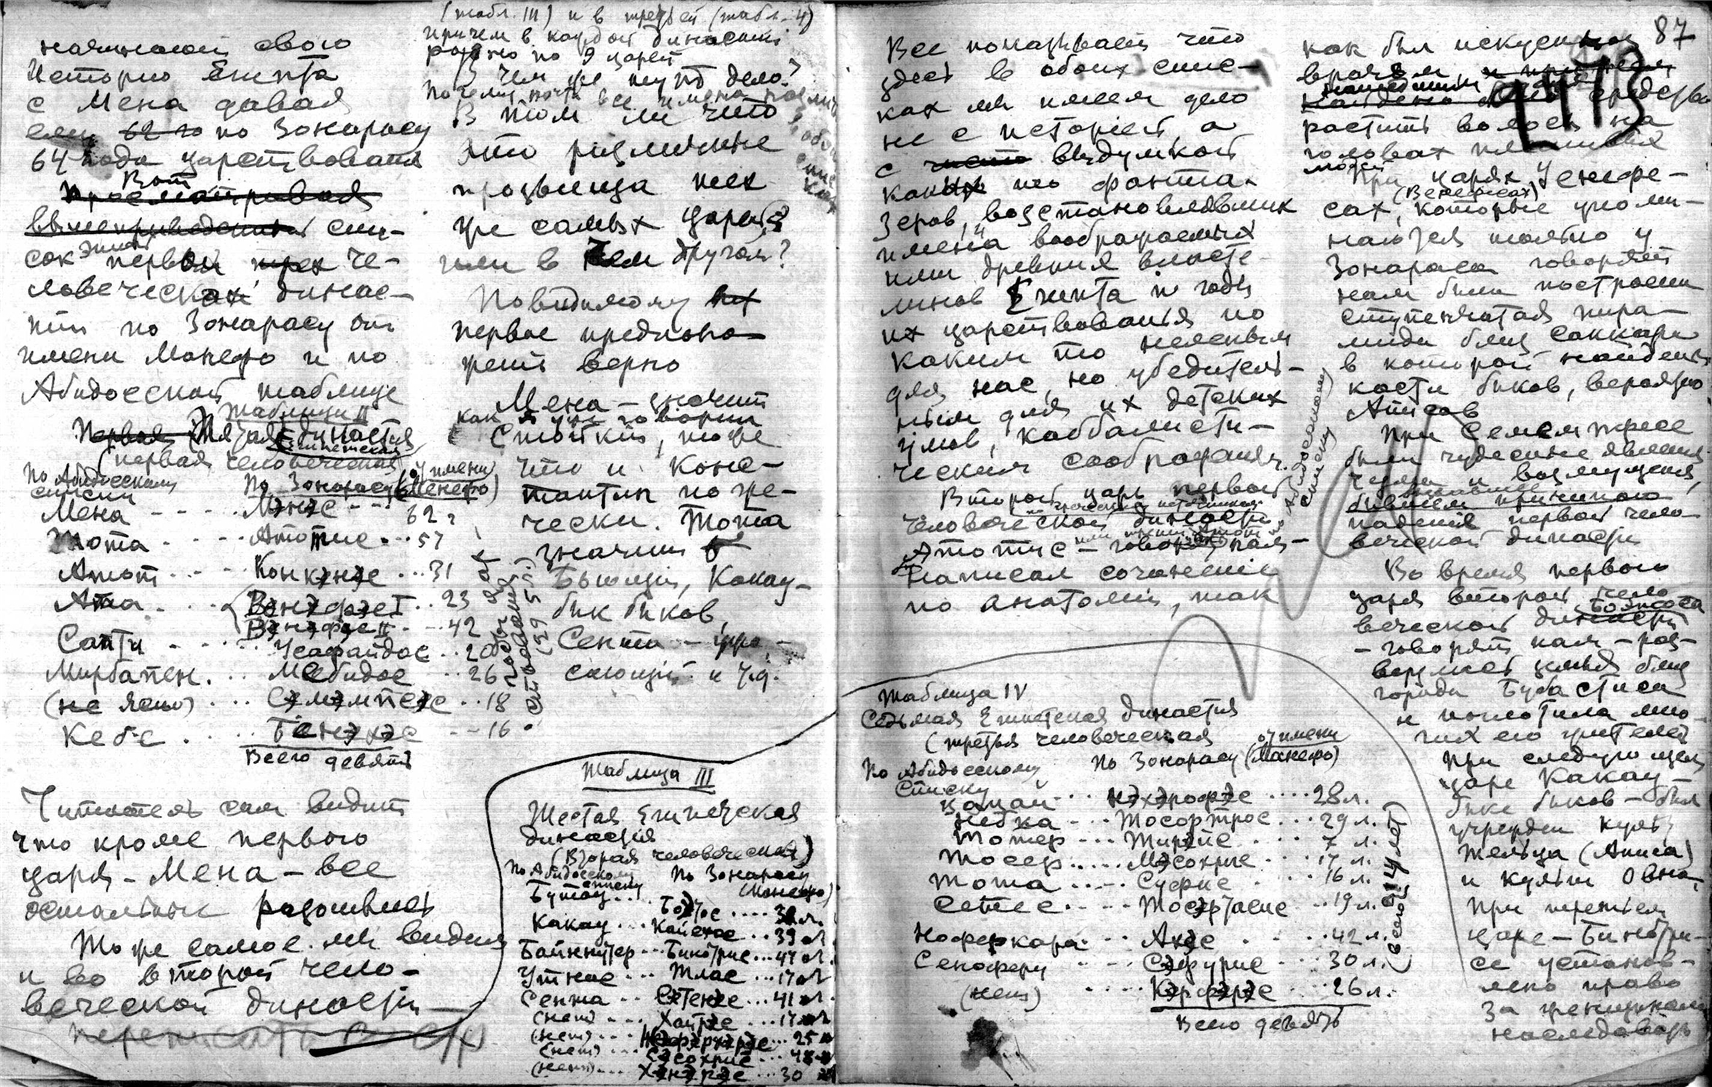 начинают свою
Историю Египта
с Мена давая
ему 62 го по Зонарасу
64 года царствования
Вот
Просматривая
вышеприведенный спи-
сок этой первой трех че-
ловеческой динас-
тии по Зонарасу от
имени Манефо и по
Абидосской таблице
Таблица II
Первая Пятая Египетская династия
(первая человеческая)
По Абидосскому списку
По Зонарасу (от имени Манефо)
Мена - - - - Менес - - - 62
Тота - - - Атотис - - - 57
Атот - - - - Конкенес - - - 31
Ата - - - Венефес I - - 23
Венефес II - - - 42
Сапти - - - - Усафайдос - - 20
Мирбапен - - - Мебидос - - - 26
(не ясно) - - - Семемпсес - - 18
Кебе - - - - Бенэхес - - 16
Всего девять
Читатель сам видит
что кроме первого
царя - Мена - все
остальные разошлись
То же самое мы видим
и во второй чело-
веческой династии
переписать в стр
(табл. III) и в третьей (табл. 4)
причем в каждой династии
равно по 9 царей
В чем же тут дело?
Почему почти все имена различны в обоих списках
В том ли что
это различные
прозвища тех
же самых царей?
или в чем другом?
Повидимому
первое предполо-
жение верно
Мена - значит
как я уже говорил
Стойкий, тоже
что и Конс-
тантин по гре-
чески. Тота
значит
Бьющий, Какау -
бык быков,
Сента - угро-
сающий и т.д.
Таблица III
Шестая Египетская
династия
(Вторая человеческая)
По Абидосскому списку
По Зонарасу (Манефо)
Бутау - - - Боэтос - - - 38 л.
Какау - - Кайехос - - - 39 л.
Байннутер - - Бинотрис - - - 47 л.
Утнас - - - Тлас - - - 17 л.
Сента - - - Сетенес - - - 41 л.
(нет) - - - Хайрес - - - 17 л.
(нет) - - - Неферхерес - - - 25 л.
(нет) - - - Сесохрис - - - 48 л.
(нет) - - - Хенерес - - - 30 л.
Все показывает что
здесь в обоих спис-
ках мы имеем дело
не с историей, а
с чисто выдумкой
каких то фанта-
зеров, возстановлявших
имена воображаемых
ими древних власте-
линов Египта и годы
их царствования по
каким то неясным
для нас, но убедитель-
ным для их детских
умов, каббалисти-
ческим соображениям.
Второй царь первой
человеческой династии
Атотис - говорят нам -
написал сочинение
по анатомии, так
Абидосскому списку
Таблица IV
Седьмая Египетская династия
(третья человеческая
По Абидосскому списку
По Зонарасу (от имени Манефо)
Цацай - - - Нэхэрофэс - - - 28 л.
Небка - - - Тосортрос - - - 29 л.
Тотер - - - Тирейс - - - 7 л.
Тосер - - - Месохрис - - - 17 л.
Тота - - - Суфис - - - 16 л.
Сетес - - - Тосертасис - - - 19 л.
Ноферкара - - - Ахес - - - 42 л.
Сеноферу - - - Сефурис - - - 30 л.
(нет) - - - Керферес - - - 26 л.
Всего девять
(всего 214 лет)
87
как был искусным
врачом и при нем
нашедшим средство
растить волосы на
головах
При царях Уенефе-
сах (Венефесах), которые упоми-
наются только у
Зонараса говорят
нам были построены
ступенчатая пира-
мида близ Саккары
в которой найдены
кости быков, вероятно
Аписов
При Семемпсесе
были чудесные явления
чума и возмущения,
бывшие причиною
падения первой чело-
веческой династии
Во время первого
царя второй чело-
веческой династии Боэтоса
- говорят нам - раз-
верзлась земля близ
города Бубастиса
и поглотила мно-
гих его жителей
При следующем
царе Какау -
быке быков - был
учрежден культ
Тельца (Аписа)
и культ Овна,
При третьем
царе - Бинотри-
се установ-
лено право
за женщинами
наследовать